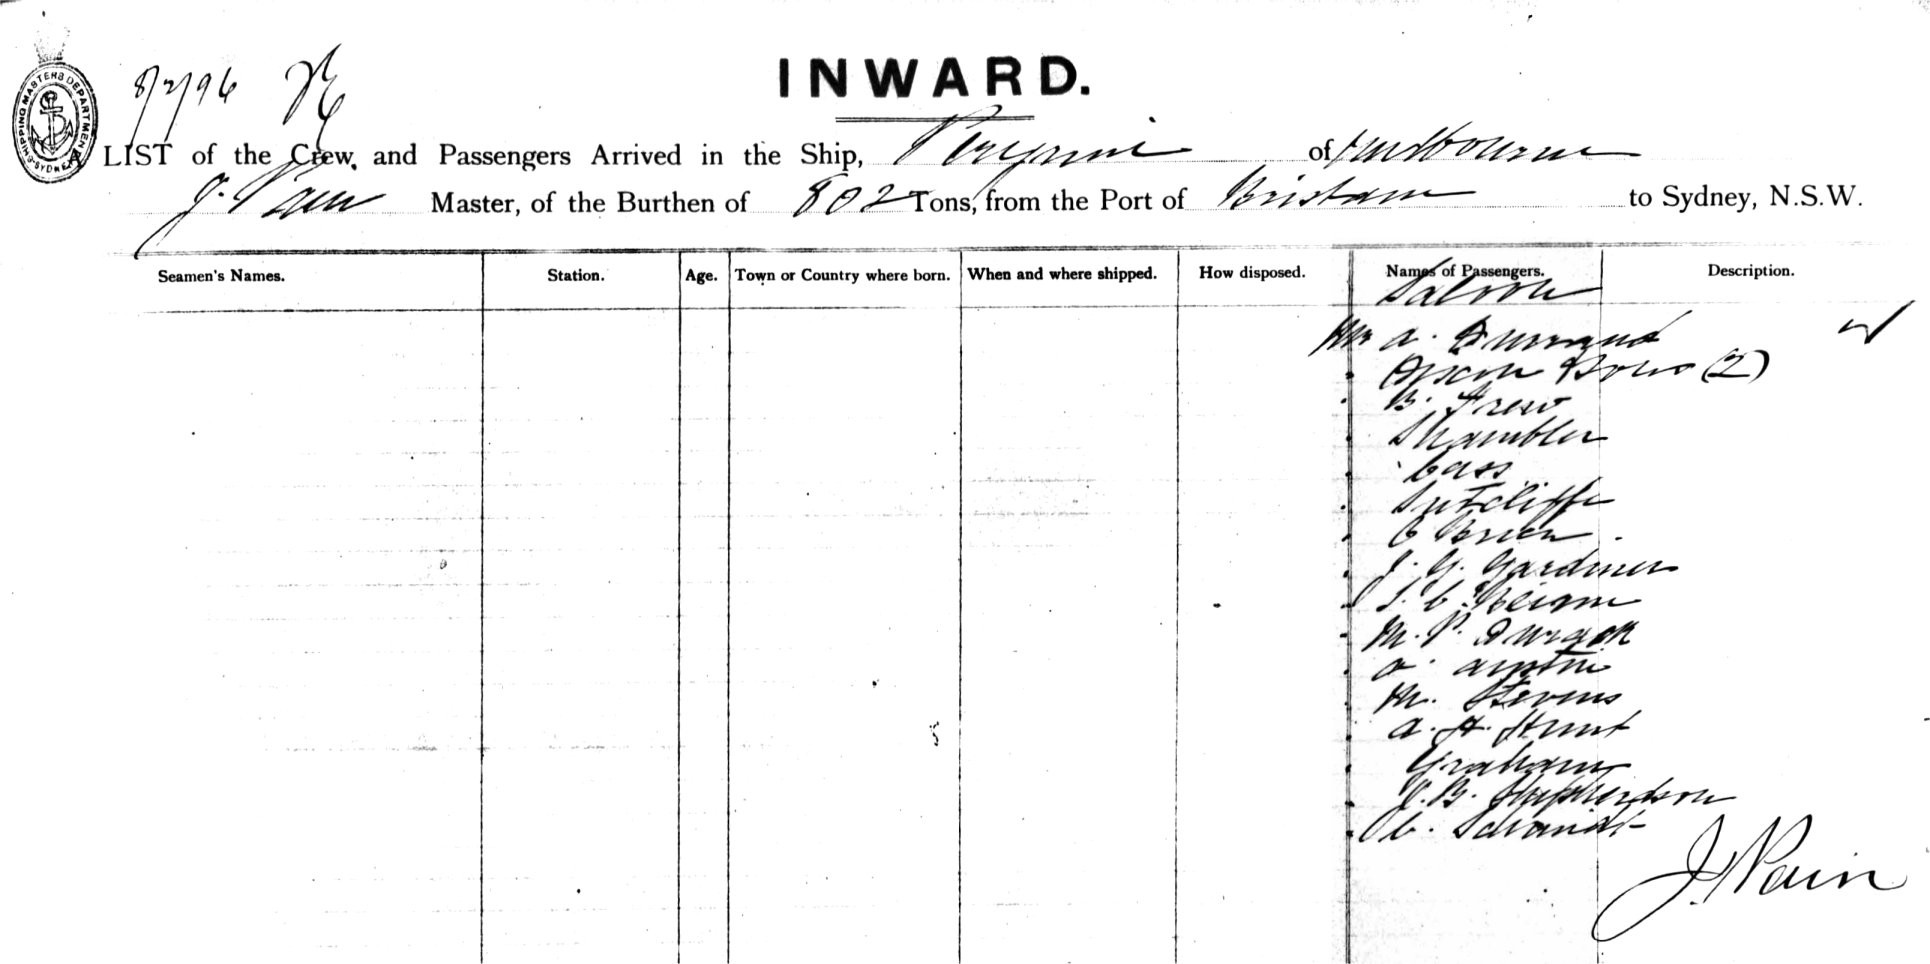 SHIPPING MASTERS DEPARTMENT SYDNEY
8/2/96
INWARD.
A LIST of the Crew, and Passengers Arrived in the Ship, Peregrine of Melbourne
J. Pain Master, of the Burthen of 802 Tons, from the Port of Brisbane to Sydney, N.S.W.
Seamen's Names. Station. Age. Town or Country where born. When and where shipped. How disposed. Names of Passengers. Description.
Saloon
Mr A. Durrand
(2)
B. Frew
Shambler
Cass
Sutcliffe
O Brien
J. G. Gardiner
S. C.
M. P. Durack
A. Austin
M. Stevens
A. H. Hunt
Graham
J. B. Shepherdson
C. Schmidt
J. Pain